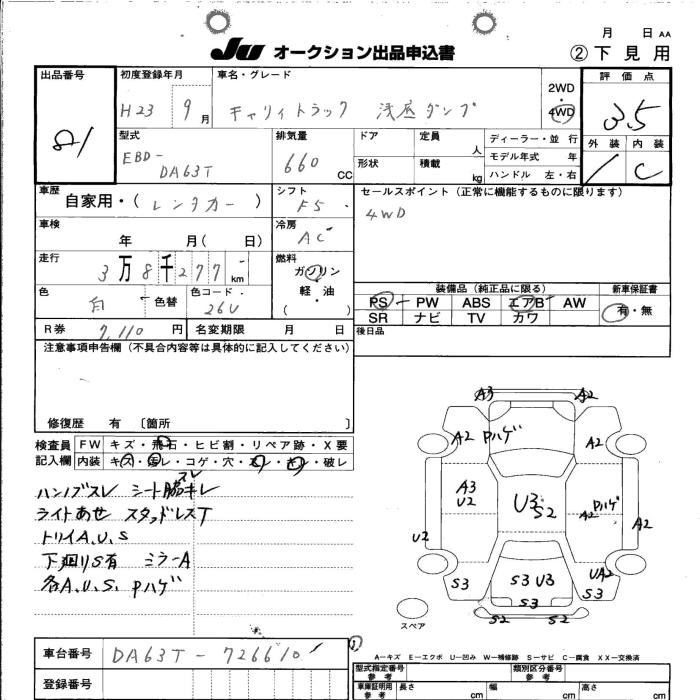 月　日 AA
JU オークション出品申込書 ②下見用
出品番号 初度登録年月 車名・グレード 評価点
81 H23 9月 キャリィトラック 浅底ダンプ 2WD・4WD 3.5
型式 排気量 ドア 定員 人 ディーラー・並行 外装 内装
EBD-DA63T 660 CC 形状 積載 kg モデル年式 年 C
ハンドル 左・右
車歴 シフト セールスポイント（正常に機能するものに限ります）
自家用・（レンタカー） F5 4WD
車検 冷房
年 月（ 日） AC
走行 燃料
3万8千277km ガソリン
軽・油
（ ）
色 色コード 装備品（純正品に限る） 新車保証書
白 色替 26U PS PW ABS エアB AW 有・無
SR ナビ TV カワ
R券 7,110円 名変期限 月 日 後日品
注意事項申告欄（不具合内容等は具体的に記入してください）
修復歴 有 〔箇所 〕
検査員 FW キズ・飛石・ヒビ割・リペア跡・X要
記入欄 内装 キズ・汚レ・コゲ・穴・スレ・キレ・破レ
ハンドブスレ シート脇キレ スレ
ライトあせ スタッドレスT
トリイA、U、S
下廻りS有 ミラーA
各A、U、S、Pハゲ
A3 A2
A2 Pハゲ A2
A3 U2 U3 S2 Pハゲ A2 A2
U2
S3 S3 U3 UA2 S3
S3
S2 S2
スペア
A－キズ E－エクボ U－凹み W－補修跡 S－サビ C－腐食 XX－交換済
車台番号 DA63T-726610
登録番号
型式指定番号 参考 類別区分番号 参考
車庫証明用 参考 長さ cm 幅 cm 高さ cm